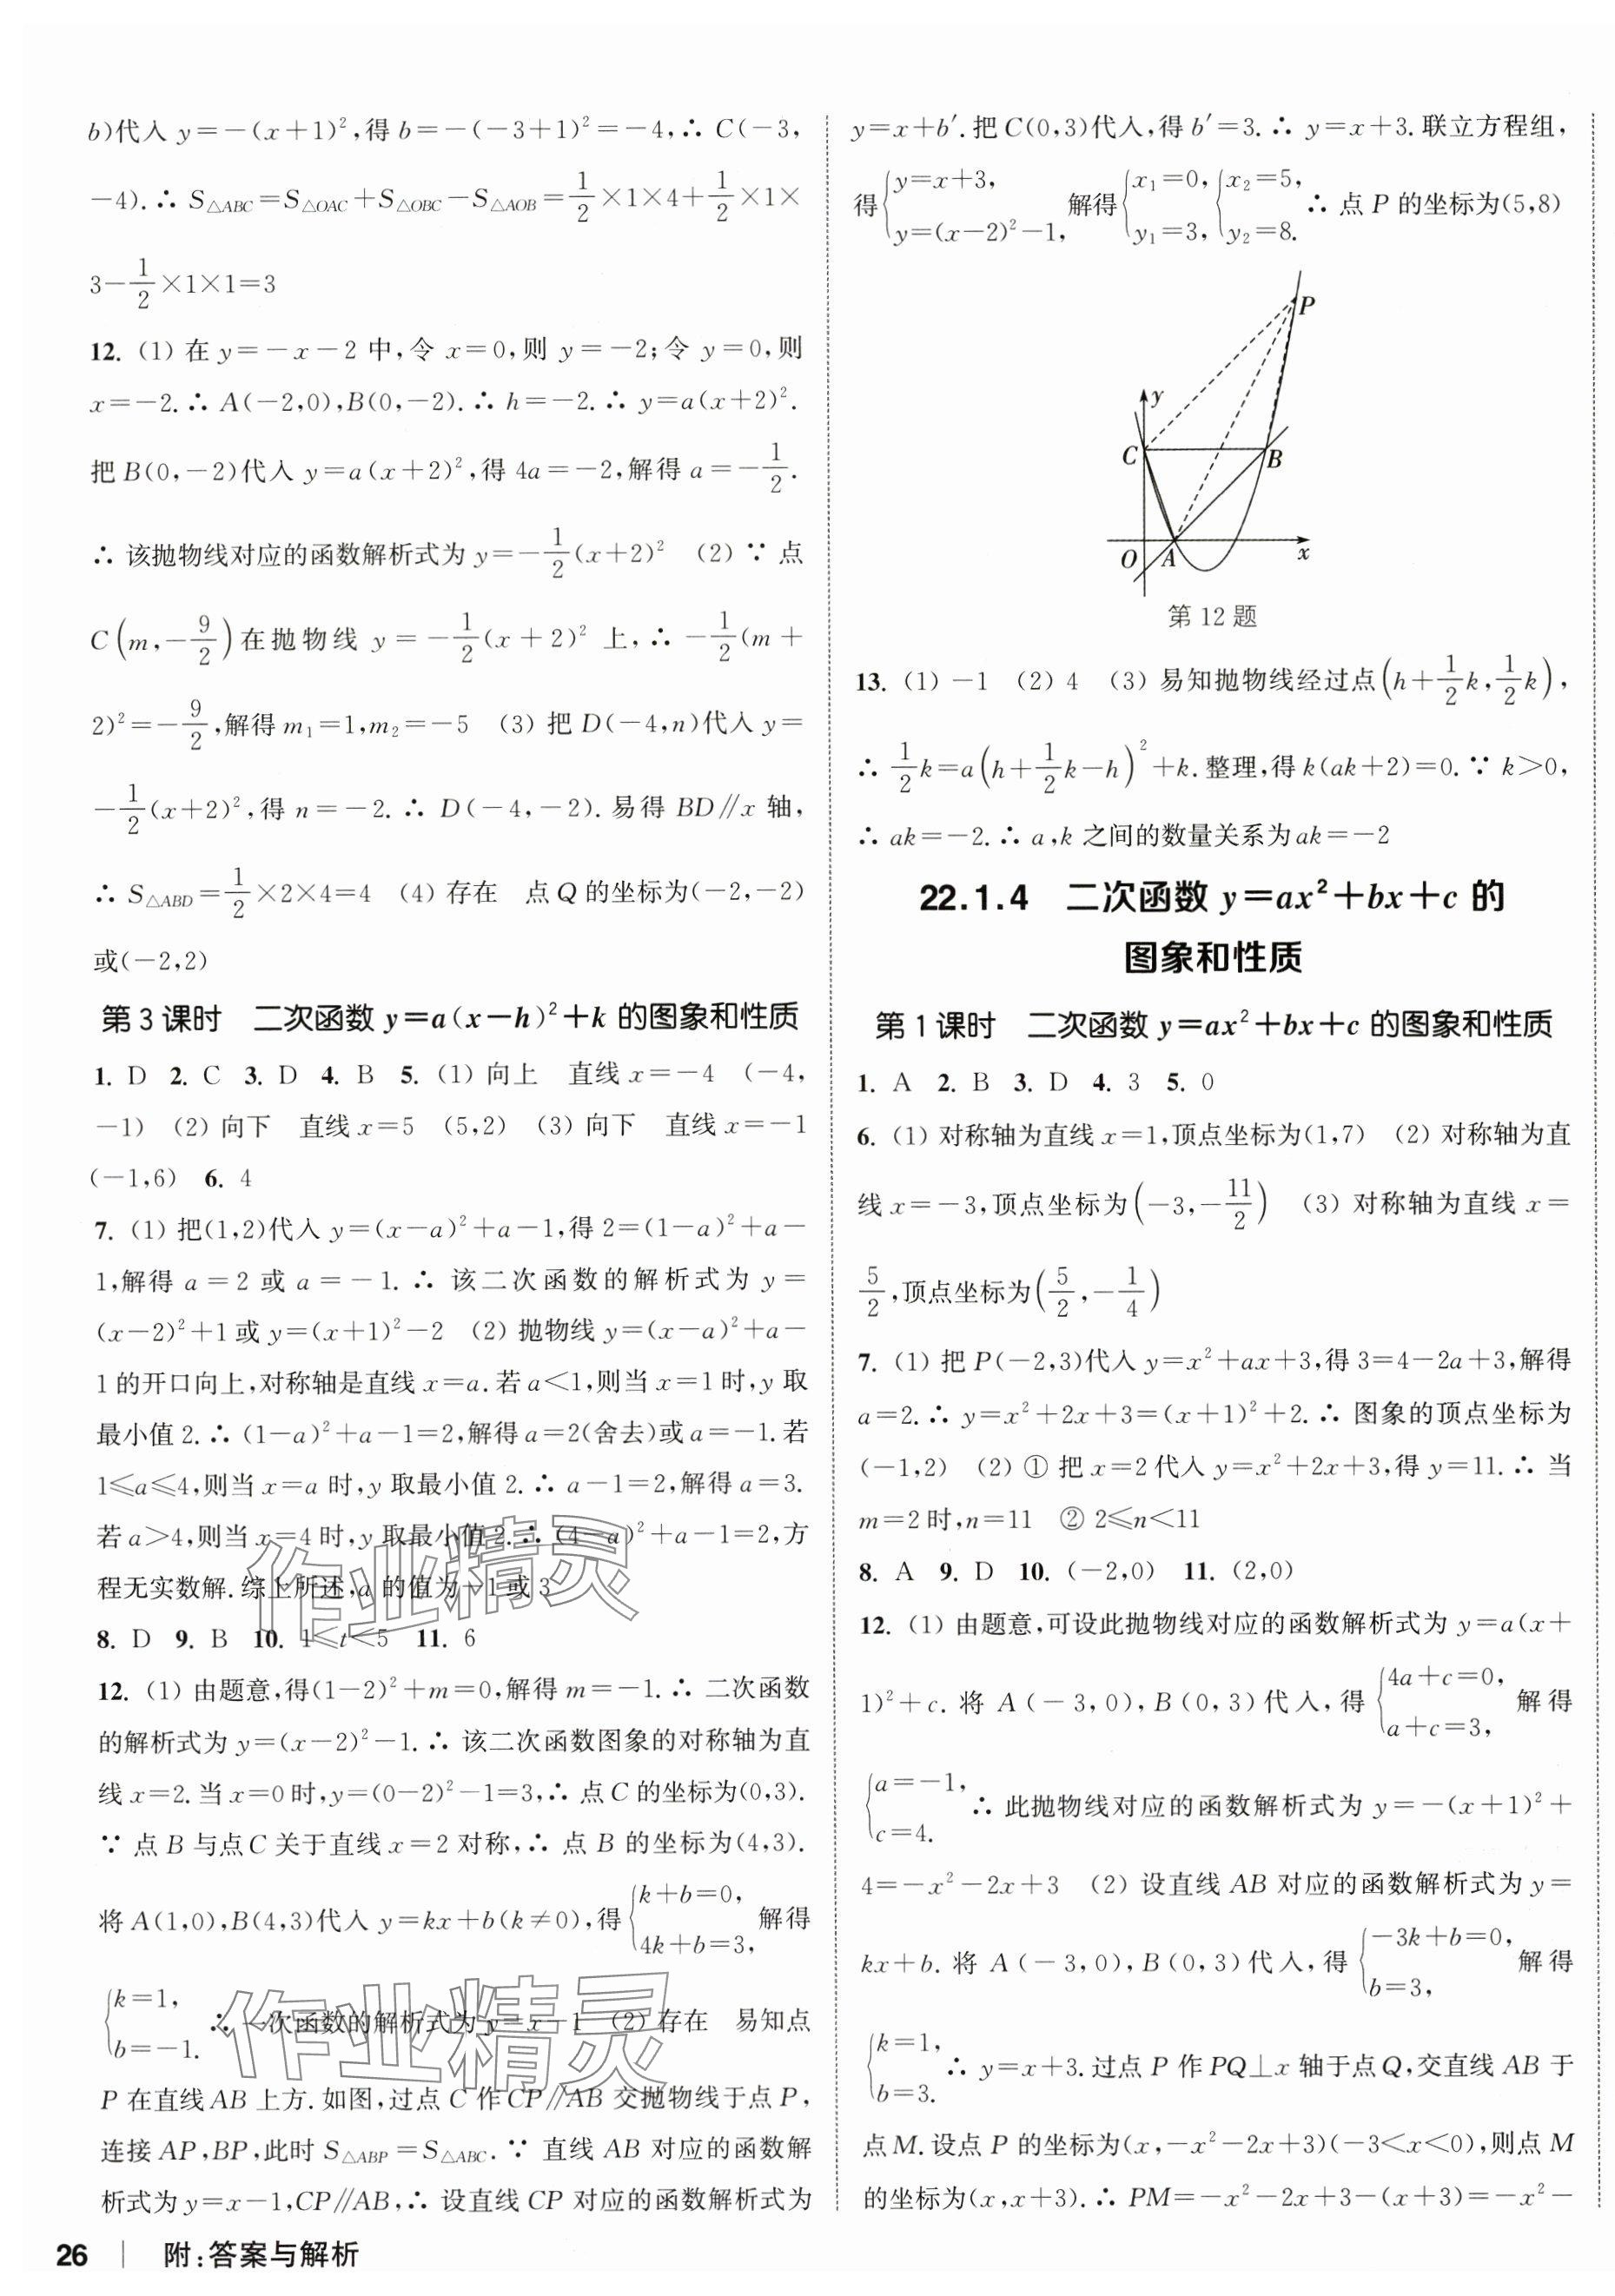 b)代入 y=-(x+1)²,得 b=-(-3+1)²=-4,∴ C(-3,
-4).∴ S△ABC=S△OAC+S△OBC-S△AOB=1/2×1×4+1/2×1×
3-1/2×1×1=3
12. (1) 在 y=-x-2 中,令 x=0,则 y=-2;令 y=0,则
x=-2.∴ A(-2,0),B(0,-2).∴ h=-2.∴ y=a(x+2)².
把 B(0,-2)代入 y=a(x+2)²,得 4a=-2,解得 a=-1/2.
∴ 该抛物线对应的函数解析式为 y=-1/2(x+2)² (2) ∵ 点
C(m,-9/2)在抛物线 y=-1/2(x+2)² 上,∴ -1/2(m+
2)²=-9/2,解得 m₁=1,m₂=-5 (3) 把 D(-4,n)代入 y=
-1/2(x+2)²,得 n=-2.∴ D(-4,-2).易得 BD∥x 轴,
∴ S△ABD=1/2×2×4=4 (4) 存在 点 Q 的坐标为(-2,-2)
或(-2,2)
第 3 课时 二次函数 y=a(x-h)²+k 的图象和性质
1. D 2. C 3. D 4. B 5. (1) 向上 直线 x=-4 (-4,
-1) (2) 向下 直线 x=5 (5,2) (3) 向下 直线 x=-1
(-1,6) 6. 4
7. (1) 把(1,2)代入 y=(x-a)²+a-1,得 2=(1-a)²+a-
1,解得 a=2 或 a=-1.∴ 该二次函数的解析式为 y=
(x-2)²+1 或 y=(x+1)²-2 (2) 抛物线 y=(x-a)²+a-
1 的开口向上,对称轴是直线 x=a.若 a<1,则当 x=1 时,y 取
最小值 2.∴ (1-a)²+a-1=2,解得 a=2(舍去)或 a=-1.若
1≤a≤4,则当 x=a 时,y 取最小值 2.∴ a-1=2,解得 a=3.
若 a>4,则当 x=4 时,y 取最小值 2.∴ (4-a)²+a-1=2,方
程无实数解.综上所述,a 的值为-1 或 3
8. D 9. B 10. 1≤t<5 11. 6
12. (1) 由题意,得(1-2)²+m=0,解得 m=-1.∴ 二次函数
的解析式为 y=(x-2)²-1.∴ 该二次函数图象的对称轴为直
线 x=2.当 x=0 时,y=(0-2)²-1=3,∴ 点 C 的坐标为(0,3).
∵ 点 B 与点 C 关于直线 x=2 对称,∴ 点 B 的坐标为(4,3).
将 A(1,0),B(4,3)代入 y=kx+b(k≠0),得{k+b=0, 4k+b=3, 解得
{k=1, b=-1. ∴ 一次函数的解析式为 y=x-1 (2) 存在 易知点
P 在直线 AB 上方.如图,过点 C 作 CP∥AB 交抛物线于点 P,
连接 AP,BP,此时 S△ABP=S△ABC.∵ 直线 AB 对应的函数解
析式为 y=x-1,CP∥AB,∴ 设直线 CP 对应的函数解析式为
y=x+b′.把 C(0,3)代入,得 b′=3.∴ y=x+3.联立方程组,
得{y=x+3, y=(x-2)²-1, 解得{x₁=0, y₁=3, {x₂=5, y₂=8. ∴ 点 P 的坐标为(5,8)
P
y
C
B
O
A
x
第 12 题
13. (1) -1 (2) 4 (3) 易知抛物线经过点(h+1/2k,1/2k),
∴ 1/2k=a(h+1/2k-h)²+k.整理,得 k(ak+2)=0.∵ k>0,
∴ ak=-2.∴ a,k 之间的数量关系为 ak=-2
22.1.4 二次函数 y=ax²+bx+c 的
图象和性质
第 1 课时 二次函数 y=ax²+bx+c 的图象和性质
1. A 2. B 3. D 4. 3 5. 0
6. (1) 对称轴为直线 x=1,顶点坐标为(1,7) (2) 对称轴为直
线 x=-3,顶点坐标为(-3,-11/2) (3) 对称轴为直线 x=
5/2,顶点坐标为(5/2,-1/4)
7. (1) 把 P(-2,3)代入 y=x²+ax+3,得 3=4-2a+3,解得
a=2.∴ y=x²+2x+3=(x+1)²+2.∴ 图象的顶点坐标为
(-1,2) (2) ① 把 x=2 代入 y=x²+2x+3,得 y=11.∴ 当
m=2 时,n=11 ② 2≤n<11
8. A 9. D 10. (-2,0) 11. (2,0)
12. (1) 由题意,可设此抛物线对应的函数解析式为 y=a(x+
1)²+c.将 A(-3,0),B(0,3)代入,得{4a+c=0, a+c=3, 解得
{a=-1, c=4. ∴ 此抛物线对应的函数解析式为 y=-(x+1)²+
4=-x²-2x+3 (2) 设直线 AB 对应的函数解析式为 y=
kx+b.将 A(-3,0),B(0,3)代入,得{-3k+b=0, b=3, 解得
{k=1, b=3. ∴ y=x+3.过点 P 作 PQ⊥x 轴于点 Q,交直线 AB 于
点 M.设点 P 的坐标为(x,-x²-2x+3)(-3<x<0),则点 M
的坐标为(x,x+3).∴ PM=-x²-2x+3-(x+3)=-x²-
作业精灵
作业精灵
26 | 附:答案与解析